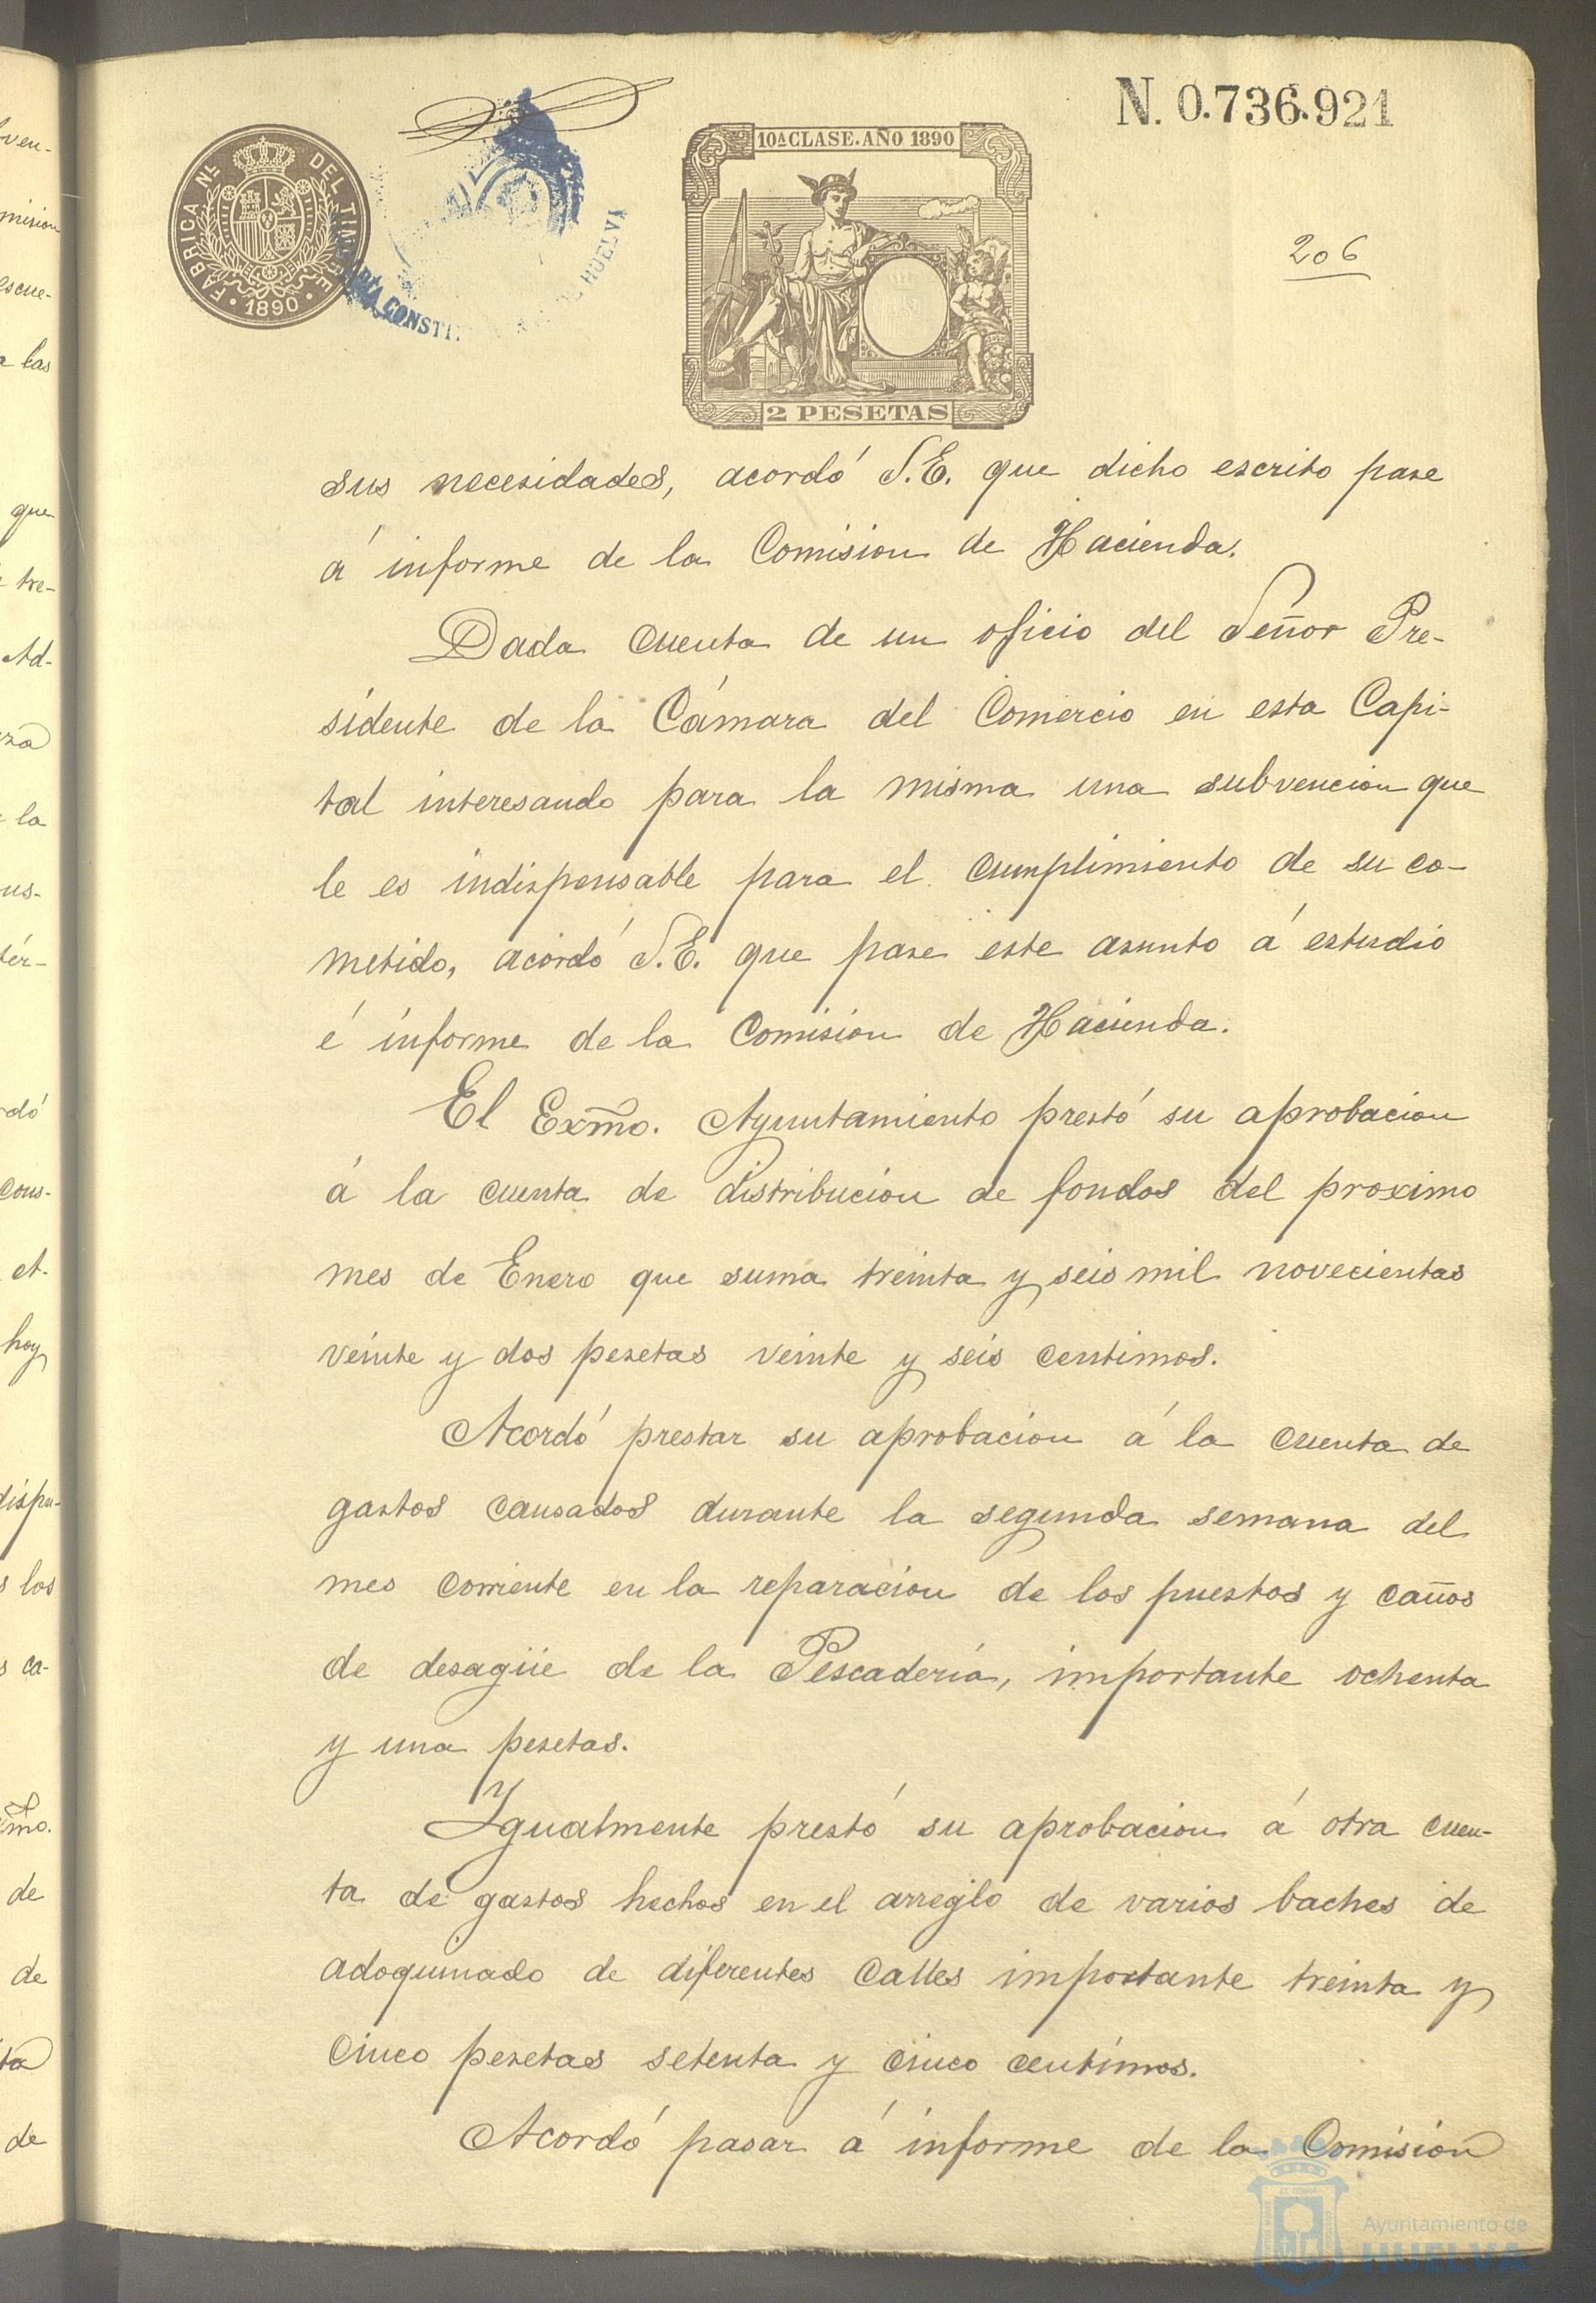 N. 0.736.921
10ª CLASE. AÑO 1890
FABRICA Nˡ DEL TIMBRE
· 1890 ·
CONSTI
HUELVA
206
2 PESETAS
sus necesidades, acordó S.E. que dicho escrito pase
á informe de la Comision de Hacienda.
Dada cuenta de un oficio del Señor Pre-
sidente de la Cámara del Comercio en esta Capi-
tal interesando para la misma una subvencion que
le es indispensable para el cumplimiento de su co-
metido, acordó S.E. que pase este asunto á estudio
é informe de la Comision de Hacienda.
El Exmo. Ayuntamiento prestó su aprobacion
á la cuenta de distribucion de fondos del proximo
mes de Enero que suma treinta y seis mil novecientas
veinte y dos pesetas veinte y seis centimos.
Acordó prestar su aprobacion á la cuenta de
gastos causados durante la segunda semana del
mes corriente en la reparacion de los puestos y caños
de desagüe de la Pescaderia, importante ochenta
y una pesetas.
Ygualmente prestó su aprobacion á otra cuen-
ta de gastos hechos en el arreglo de varios baches de
adoquinado de diferentes calles importante treinta y
cinco pesetas setenta y cinco centimos.
Acordó pasar á informe de la Comision
Ayuntamiento de
HUELVA